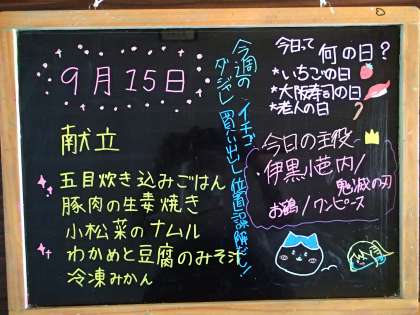 9月15日
献立
五目炊き込みごはん
豚肉の生姜焼き
小松菜のナムル
わかめと豆腐のみそ汁
冷凍みかん
今週の
ダジャレ
イチゴ
買い出し
位置誤解だし!
今日って
何の日?
*いちごの日
*大阪寿司の日
*老人の日
今日の主役
伊黒小芭内/
鬼滅の刃
お鶴/ワンピース